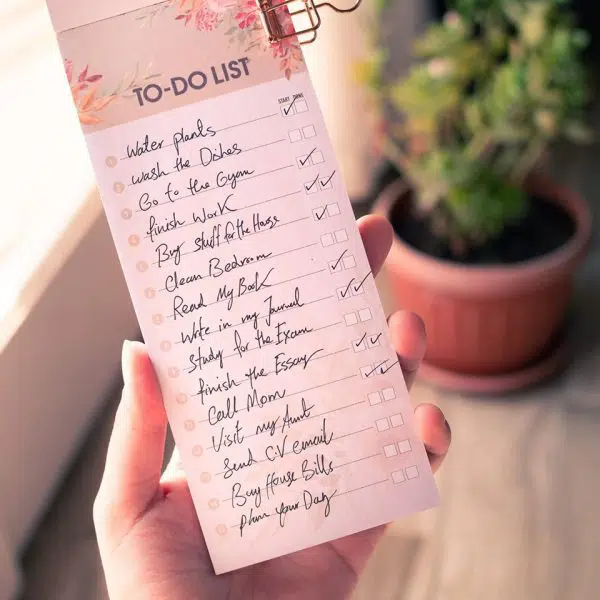 TO-DO LIST
START DONE
Water plants
wash the Dishes
Go to the Gym
finish Work
Buy stuff for the House
Clean Bedroom
Read My Book
Write in my Journal
Study for the Exam
finish the Essay
Call Mom
Visit my Aunt
Send CV email
Buy House Bills
plan your Day